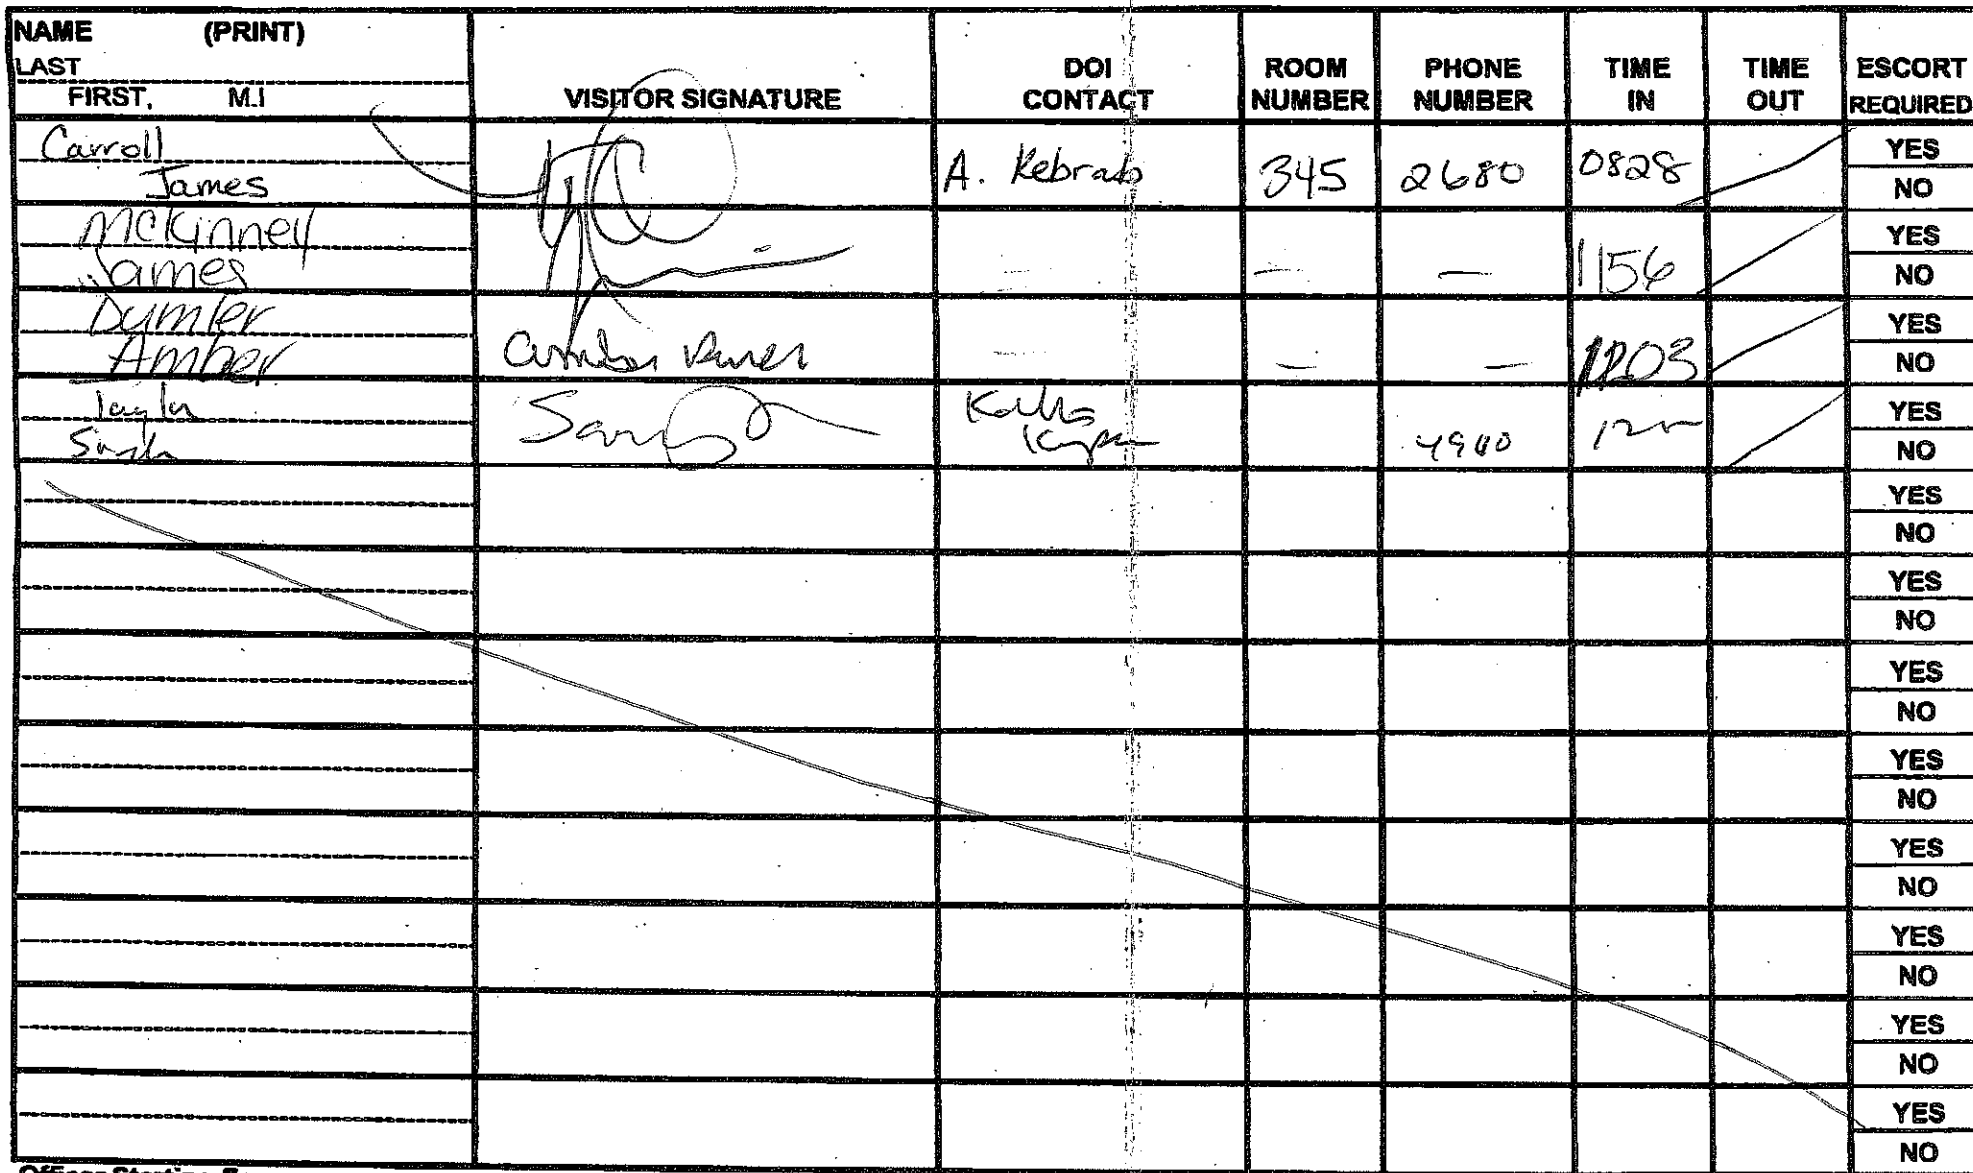 NAME (PRINT)
LAST
FIRST, M.I
VISITOR SIGNATURE
DOI CONTACT
ROOM NUMBER
PHONE NUMBER
TIME IN
TIME OUT
ESCORT REQUIRED
Carroll
James
A. Kebrab
345
2680
0828
YES
NO
McKinney
James
—
—
—
1156
YES
NO
Dymler
Amber
—
—
—
1203
YES
NO
Taylor
YES
NO
YES
NO
YES
NO
YES
NO
YES
NO
YES
NO
YES
NO
YES
NO
YES
NO